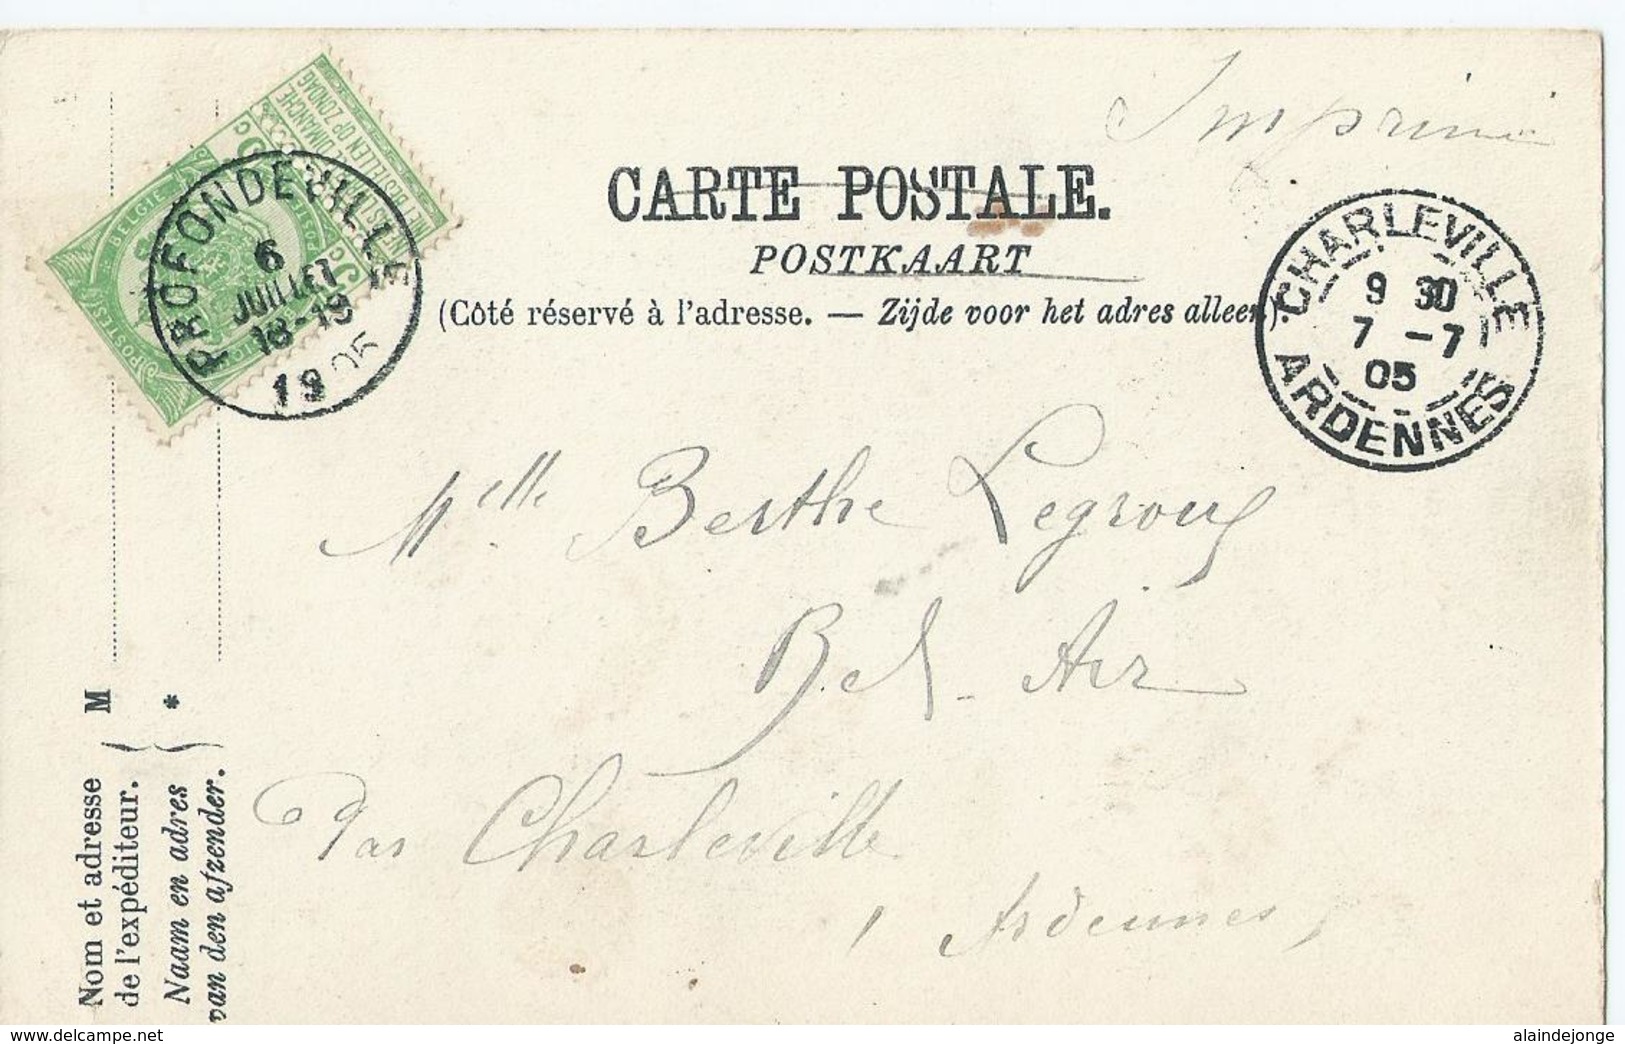 Imprimé
CARTE POSTALE.
POSTKAART
(Côté réservé à l'adresse. — Zijde voor het adres alleen).
PROFONDEVILLE
6
JUILLET
18-19
1905
BELGIE
POSTES
NE PAS LIVRER LE DIMANCHE
NIET BESTELLEN OP ZONDAG
5 c
5 c
CHARLEVILLE
9 30
7 -7
05
ARDENNES
Melle Berthe Legroux
Bel-Air
par Charleville
Ardennes
Nom et adresse
de l'expéditeur.
M
Naam en adres
van den afzender.
*
delcampe.net
alaindejonge